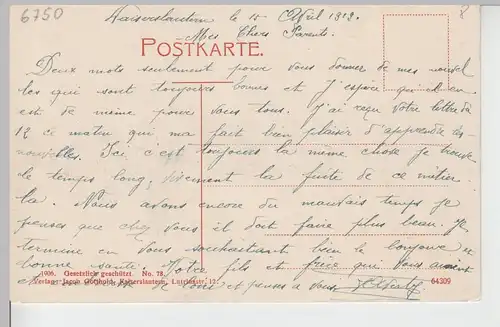 6750
8
Kaiserslautern le 15 Avril 1919.
Mes Chers Parents.
POSTKARTE.
Deux mots seulement pour vous donner de mes nouvel
les qui sont toujours bonnes et j'espère qu'il en
est de même pour vous tous. J'ai reçu votre lettre du
12 ce matin qui m'a fait bien plaisir d'apprendre les
nouvelles. Ici c'est toujours la même chose je trouve
le temps long, vivement la fuite de ce métier
là. Nous avons encore du mauvais temps je
penses que chez vous il doit faire plus beau. Je
termine en vous souhaitant bien le bonjour et
bonne santé. Votre fils et frère qui vous aiment
et de tous et penses a vous
1906. Gesetzlich geschützt. No. 78.
Verlag: Jacob Kaiserslautern, 12.
64309